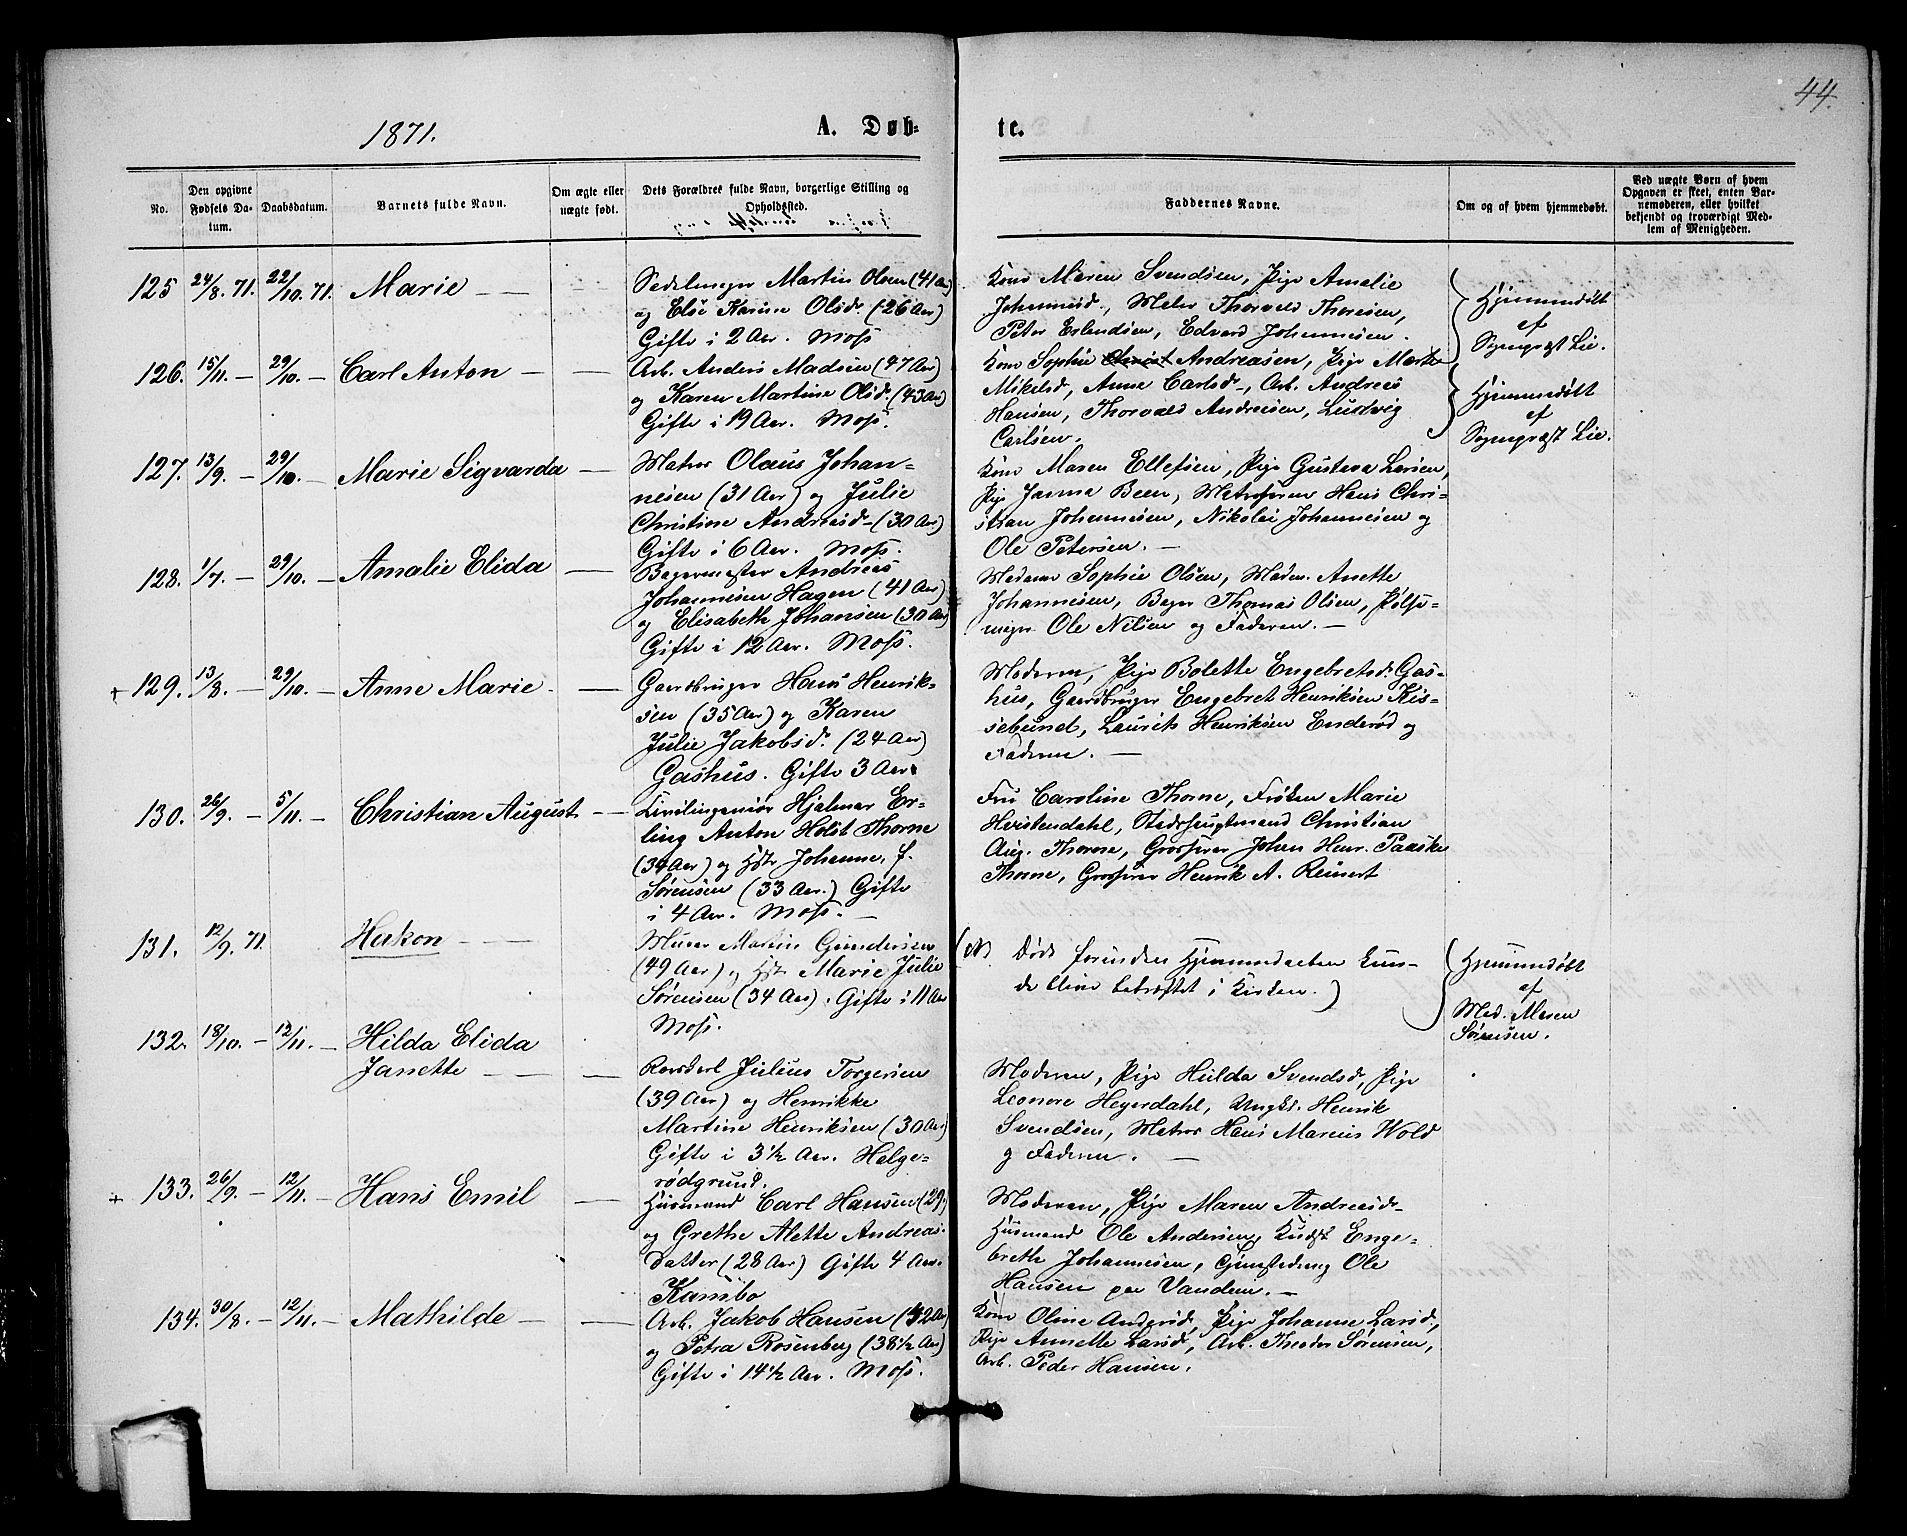 44.
1871.
A. Døb-
te.
No.
Den opgivne Fødsels Da-
tum.
Daabsdatum.
Barnets fulde Navn.
Om ægte eller
uægte født.
Dets Forældres fulde Navn, borgerlige Stilling og
Opholdssted.
Faddernes Navne.
Om og af hvem hjemmedøbt.
Ved uægte Børn af hvem
Opgaven er skeet, enten Bar-
nemoderen, eller hvilket
bekjendt og troværdigt Med-
lem af Menigheden.
125 24/8. 71. 22/10. 71. Marie — —
Sadelmager Martin Olsen (41 Aar)
og Else Karine Olsd. (26 Aar)
Gifte i 2 Aar. Moss
Kone Maren Svendsen, Pige Amalie
Johannesd., Maler Thorvald Thoresen,
Peter Erlendsen, Edvard Johannesen.
Hjemmedøbt
af
Sognepræst Lie.
126. 15/11. — 29/10. — Carl Anton — —
Arb. Anders Madsen (47 Aar)
og Karen Martine Olsd. (43 Aar)
Gifte i 19 Aar. Moss.
Kone Sophie Andreasen, Pige Marthe
Mikelsd., Anne Carlsd., Arb. Andreas
Hansen, Thorvald Andresen, Ludvig
Carlsen.
Hjemmedøbt
af
Sognepræst Lie.
127. 13/9. — 29/10. — Marie Sigvarda —
Matros Olaus Johan-
nesen (31 Aar) og Julie
Christine Andreasd. (30 Aar)
Gifte i 6 Aar. Moss.
Kone Maren Ellefsen, Pige Gustava Larsen,
Pige Janna Been, Matroserne Hans Chri-
stian Johannesen, Nikolai Johannesen og
Ole Petersen. —
128. 1/7. — 29/10. — Amalie Elida —
Bagermester Andreas
Johannesen Hagen (41 Aar)
og Elisabeth Johansen (30 Aar)
Gifte i 12 Aar. Moss.
Madame Sophie Olsen, Madm. Anette
Johannesen, Bager Thomas Olsen, Pølse-
mager Ole Nilsen og Faderen. —
+ 129. 13/8. — 29/10. — Anne Marie. —
Gaardbruger Hans Henrik-
sen (35 Aar) og Karen
Julie Jakobsd. (24 Aar)
Gashus. Gifte 3 Aar.
Moderen, Pige Bolette Engebretsd. Gas-
hus, Gaardbruger Engebret Henriksen Kis-
sebund, Laurits Henriksen Enderød og
Faderen. —
130. 26/9. — 5/11. — Christian August — —
Civilingeniør Hjalmar Er-
ling Anton Holst Thorne
(34 Aar) og Hst. Johanne, f.
Sørensen (33 Aar.) Gifte
i 4 Aar. Moss. —
Fru Caroline Thorne, Frøken Marie
Hvistendahl, Stadshauptmand Christian
Aug. Thorne, Grosserer Johan Henr. Paaske
Thorne, Grosserer Henrik A. Reinert
131. 12/9. 71. Hakon — —
Murer Martin Gundersen
(49 Aar) og Hst. Marie Julie
Sørensen (34 Aar). Gifte i 11 Aar
Moss.
(NB. Døde forinden Hjemmedaaben kun-
de blive bekræftet i Kirken.)
Hjemmedøbt
af
Mad. Maren
Sørensen.
132. 18/10. — 12/11. — Hilda Elida
Janette — —
Rorskarl Julius Torgersen
(39 Aar) og Henrikke
Martine Henriksen (30 Aar)
Gifte i 3½ Aar. Helge-
rødgrund.
Moderen, Pige Hulda Svendsd., Pige
Leonore Heyerdahl, Ungk. Henrik
Svendsen, Matros Hans Marius Wold
og Faderen. —
+ 133. 26/9. — 12/11. — Hans Emil —
Husmand Carl Hansen (29)
og Grethe Alette Andreas-
datter (28 Aar) Gifte 4 Aar.
Kambo
Moderen, Pige Maren Andreasd.
Husmand Ole Andersen, Kudsk Enge-
breth Johannesen, Ole
Hansen paa Vanden. —
134. 30/8. — 12/11. — Mathilde — —
Arb. Jakob Hansen (42 Aar)
og Petra Rosenberg (38½ Aar)
Gifte i 14½ Aar. Moss.
Kone Oline Anderød, Pige Johanne Larsd.,
Pige Annette Larsd., Arb. Theodor Sørensen,
Arb. Peder Hansen.